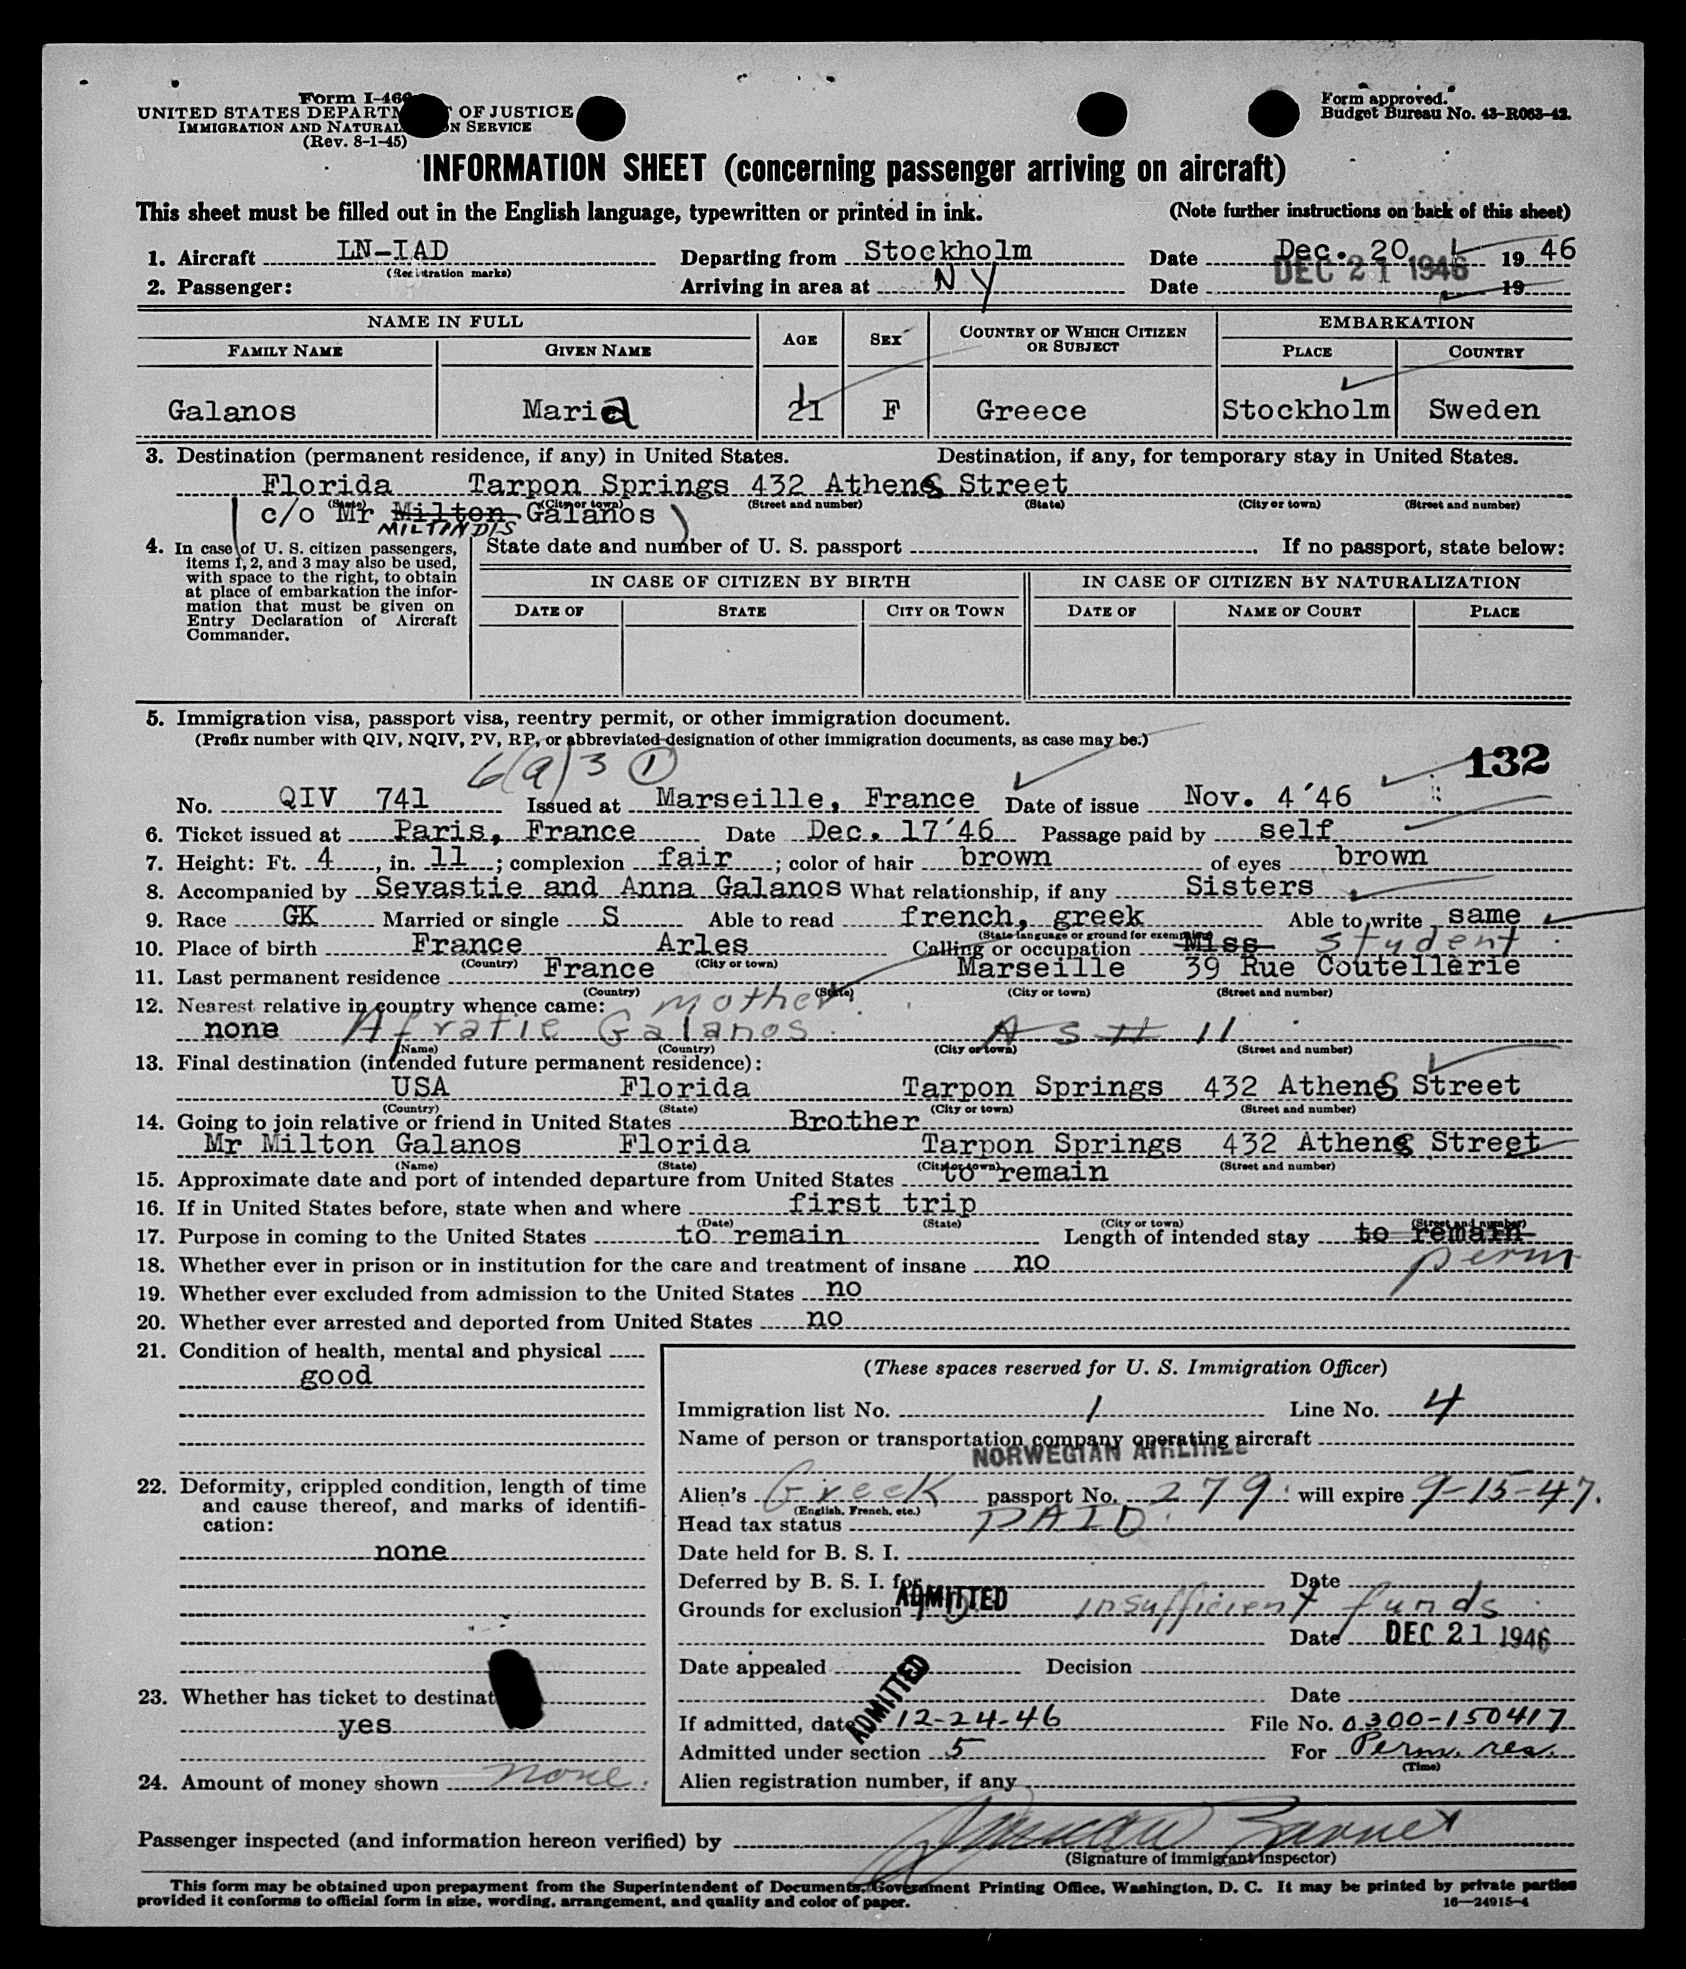 Form I-466
UNITED STATES DEPARTMENT OF JUSTICE
IMMIGRATION AND NATURALIZATION SERVICE
(Rev. 8-1-45)
Form approved.
Budget Bureau No. 43-R063-42.
INFORMATION SHEET (concerning passenger arriving on aircraft)
This sheet must be filled out in the English language, typewritten or printed in ink. (Note further instructions on back of this sheet)
1. Aircraft LN-IAD Departing from Stockholm Date Dec. 20 19 46
(Registration marks)
2. Passenger: Arriving in area at N Y Date DEC 21 1946 19
NAME IN FULL AGE SEX COUNTRY OF WHICH CITIZEN OR SUBJECT EMBARKATION
FAMILY NAME GIVEN NAME PLACE COUNTRY
Galanos Maria 21 F Greece Stockholm Sweden
3. Destination (permanent residence, if any) in United States. Destination, if any, for temporary stay in United States.
Florida Tarpon Springs 432 Athens Street
(State) (City or town) (Street and number) (State) (City or town) (Street and number)
c/o Mr Milton Galanos
MILTINDIS
4. In case of U. S. citizen passengers, items 1, 2, and 3 may also be used, with space to the right, to obtain at place of embarkation the information that must be given on Entry Declaration of Aircraft Commander.
State date and number of U. S. passport If no passport, state below:
IN CASE OF CITIZEN BY BIRTH IN CASE OF CITIZEN BY NATURALIZATION
DATE OF STATE CITY OR TOWN DATE OF NAME OF COURT PLACE
5. Immigration visa, passport visa, reentry permit, or other immigration document.
(Prefix number with QIV, NQIV, PV, RP, or abbreviated designation of other immigration documents, as case may be.)
6(a)3 1 132
No. QIV 741 Issued at Marseille, France Date of issue Nov. 4 '46
6. Ticket issued at Paris, France Date Dec. 17 '46 Passage paid by self
7. Height: Ft. 4, in. 11; complexion fair; color of hair brown of eyes brown
8. Accompanied by Sevastie and Anna Galanos What relationship, if any Sisters
9. Race GK Married or single S Able to read french, greek Able to write same
(State language or ground for exemption)
10. Place of birth France Arles Calling or occupation Miss student
(Country) (City or town)
11. Last permanent residence France Marseille 39 Rue Coutellerie
(Country) (State) (City or town) (Street and number)
12. Nearest relative in country whence came: mother
none Afratie Galanos AS # 11
(Name) (Country) (City or town) (Street and number)
13. Final destination (intended future permanent residence):
USA Florida Tarpon Springs 432 Athens Street
(Country) (State) (City or town) (Street and number)
14. Going to join relative or friend in United States Brother
Mr Milton Galanos Florida Tarpon Springs 432 Athens Street
(Name) (State) (City or town) (Street and number)
15. Approximate date and port of intended departure from United States to remain
16. If in United States before, state when and where first trip
(Date) (State) (City or town) (Street and number)
17. Purpose in coming to the United States to remain Length of intended stay to remain
perm
18. Whether ever in prison or in institution for the care and treatment of insane no
19. Whether ever excluded from admission to the United States no
20. Whether ever arrested and deported from United States no
21. Condition of health, mental and physical
good
22. Deformity, crippled condition, length of time and cause thereof, and marks of identification:
none
23. Whether has ticket to destinat
yes
24. Amount of money shown none.
(These spaces reserved for U. S. Immigration Officer)
Immigration list No. 1 Line No. 4
Name of person or transportation company operating aircraft
NORWEGIAN AIRLINES
Alien's Greek passport No. 279 will expire 9-15-47.
(English, French, etc.)
Head tax status PAID.
Date held for B. S. I.
Deferred by B. S. I. for Date
ADMITTED
Grounds for exclusion insufficient funds
Date DEC 21 1946
Date appealed Decision
Date
ADMITTED
If admitted, date 12-24-46 File No. 0300-150417
Admitted under section 5 For Perm. res.
(Time)
Alien registration number, if any
Passenger inspected (and information hereon verified) by
(Signature of immigrant inspector)
This form may be obtained upon prepayment from the Superintendent of Documents, Government Printing Office, Washington, D. C. It may be printed by private parties
provided it conforms to official form in size, wording, arrangement, and quality and color of paper. 16—24915-4